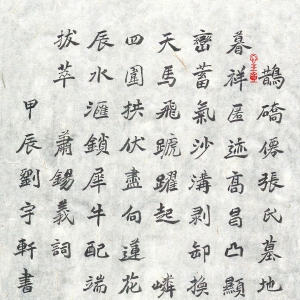 鵲磽僗張氏墓地
暮祥匿迹高昌凸顯
巒蓄氣沙溝剥卸換
天馬飛蹏躍起嶙
四圍拱伏盡向蓮花
辰水滙鎖犀牛配端
拔萃 蕭錫義詞
甲辰劉宇軒書